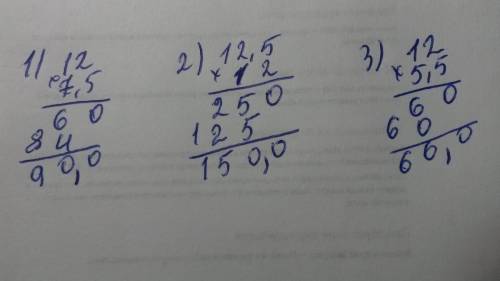 1) 12
× 7,5
60
84
90,0
2) 12,5
× 12
250
125
150,0
3) 12
× 5,5
60
60
66,0